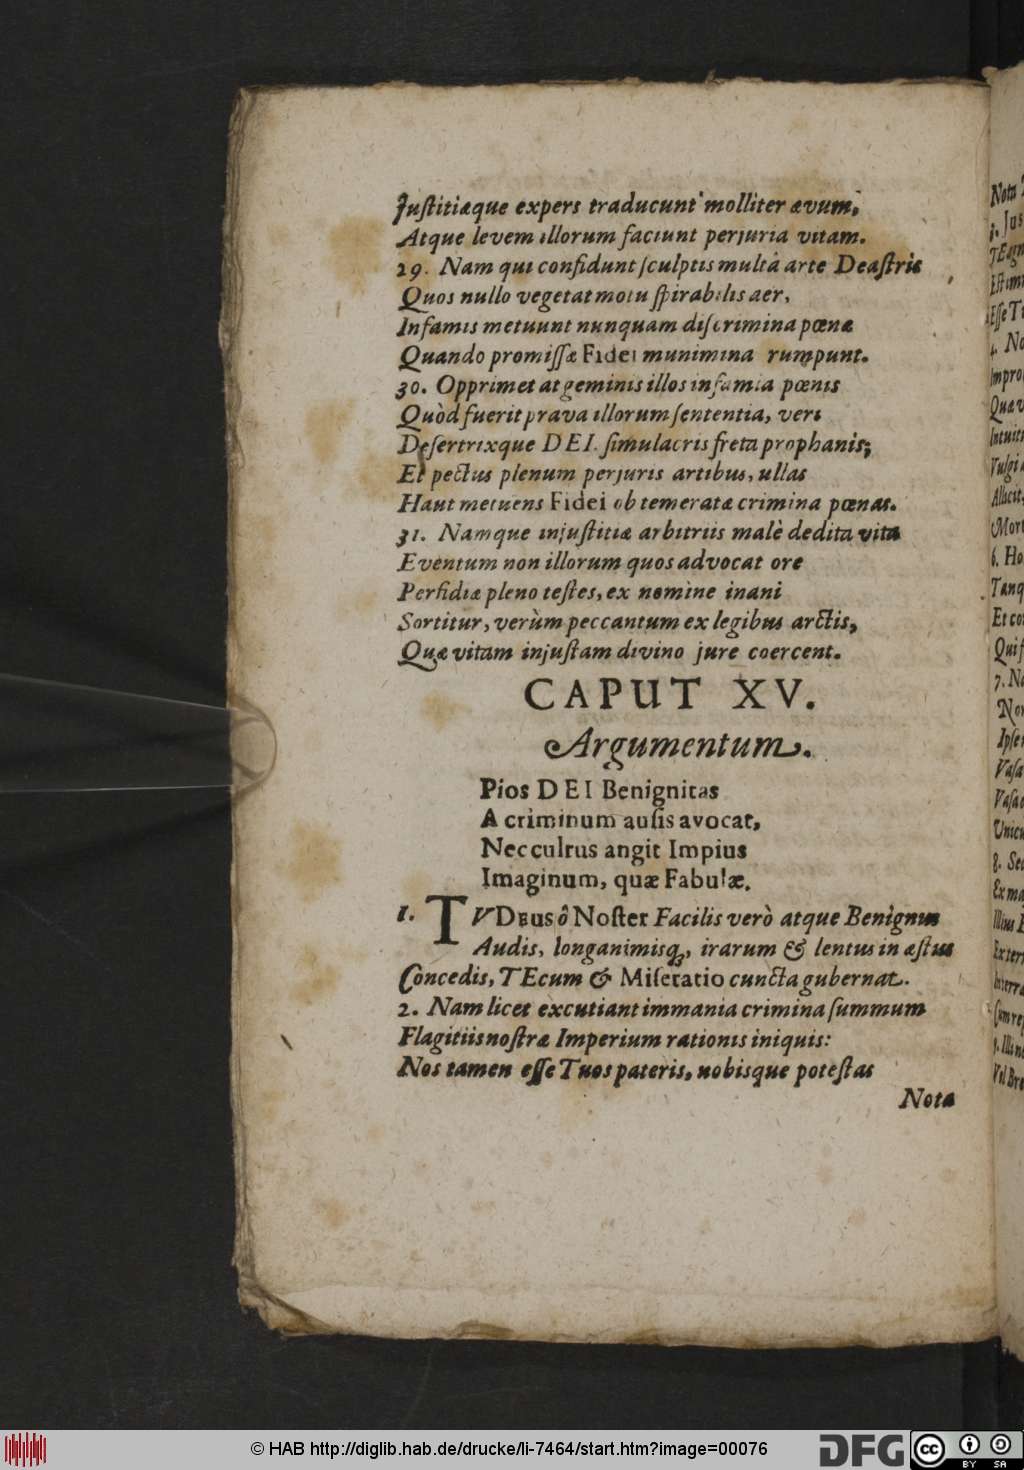 Justitiæque expers traducunt molliter ævum,
Atque levem illorum faciunt perjuria vitam.
29. Nam qui confidunt sculptis multâ arte Deastris
Quos nullo vegetat motu spirabilis aër,
Infamis metuunt nunquam discrimina pœnæ
Quando promissæ Fidei munimina rumpunt.
30. Opprimet at geminis illos infamia pœnis
Quòd fuerit prava illorum sententia, veri
Desertrixque DEI. simulacris freta prophanis;
Et pectus plenum perjuris artibus, ullas
Haut metuens Fidei ob temeratæ crimina pœnas.
31. Namque injustitiæ arbitriis malè dedita vita
Eventum non illorum quos advocat ore
Perfidiæ pleno testes, ex nomine inani
Sortitur, verùm peccantum ex legibus arctis,
Quæ vitam injustam divino jure coercent.
CAPUT XV.
Argumentum.
Pios DEI Benignitas
A criminum ausis avocat,
Nec cultus angit Impius
Imaginum, quæ Fabulæ.
1. TV DEUS ô Noster Facilis verò atque Benignus
Audis, longanimisq3, irarum & lentus in æstus
Concedis, TEcum & Miseratio cuncta gubernat.
2. Nam licet excutiant immania crimina summum
Flagitiis nostræ Imperium rationis iniquis:
Nos tamen esse Tuos pateris, nobisque potestas
Nota
Nota
3. Jus
TEagn
Esse T
4. No
Impro
Quæ v
Intuit
Vulgi
Allicit,
Mort
6. Ho
Tanq
Et co
Qui f
7. N
Non
Ipse
Vasa
Vasa
Unicu
8. Sed
Ex ma
Illius
Exter
Vel Bre
© HAB http://diglib.hab.de/drucke/li-7464/start.htm?image=00076
DFG
cc
BY SA